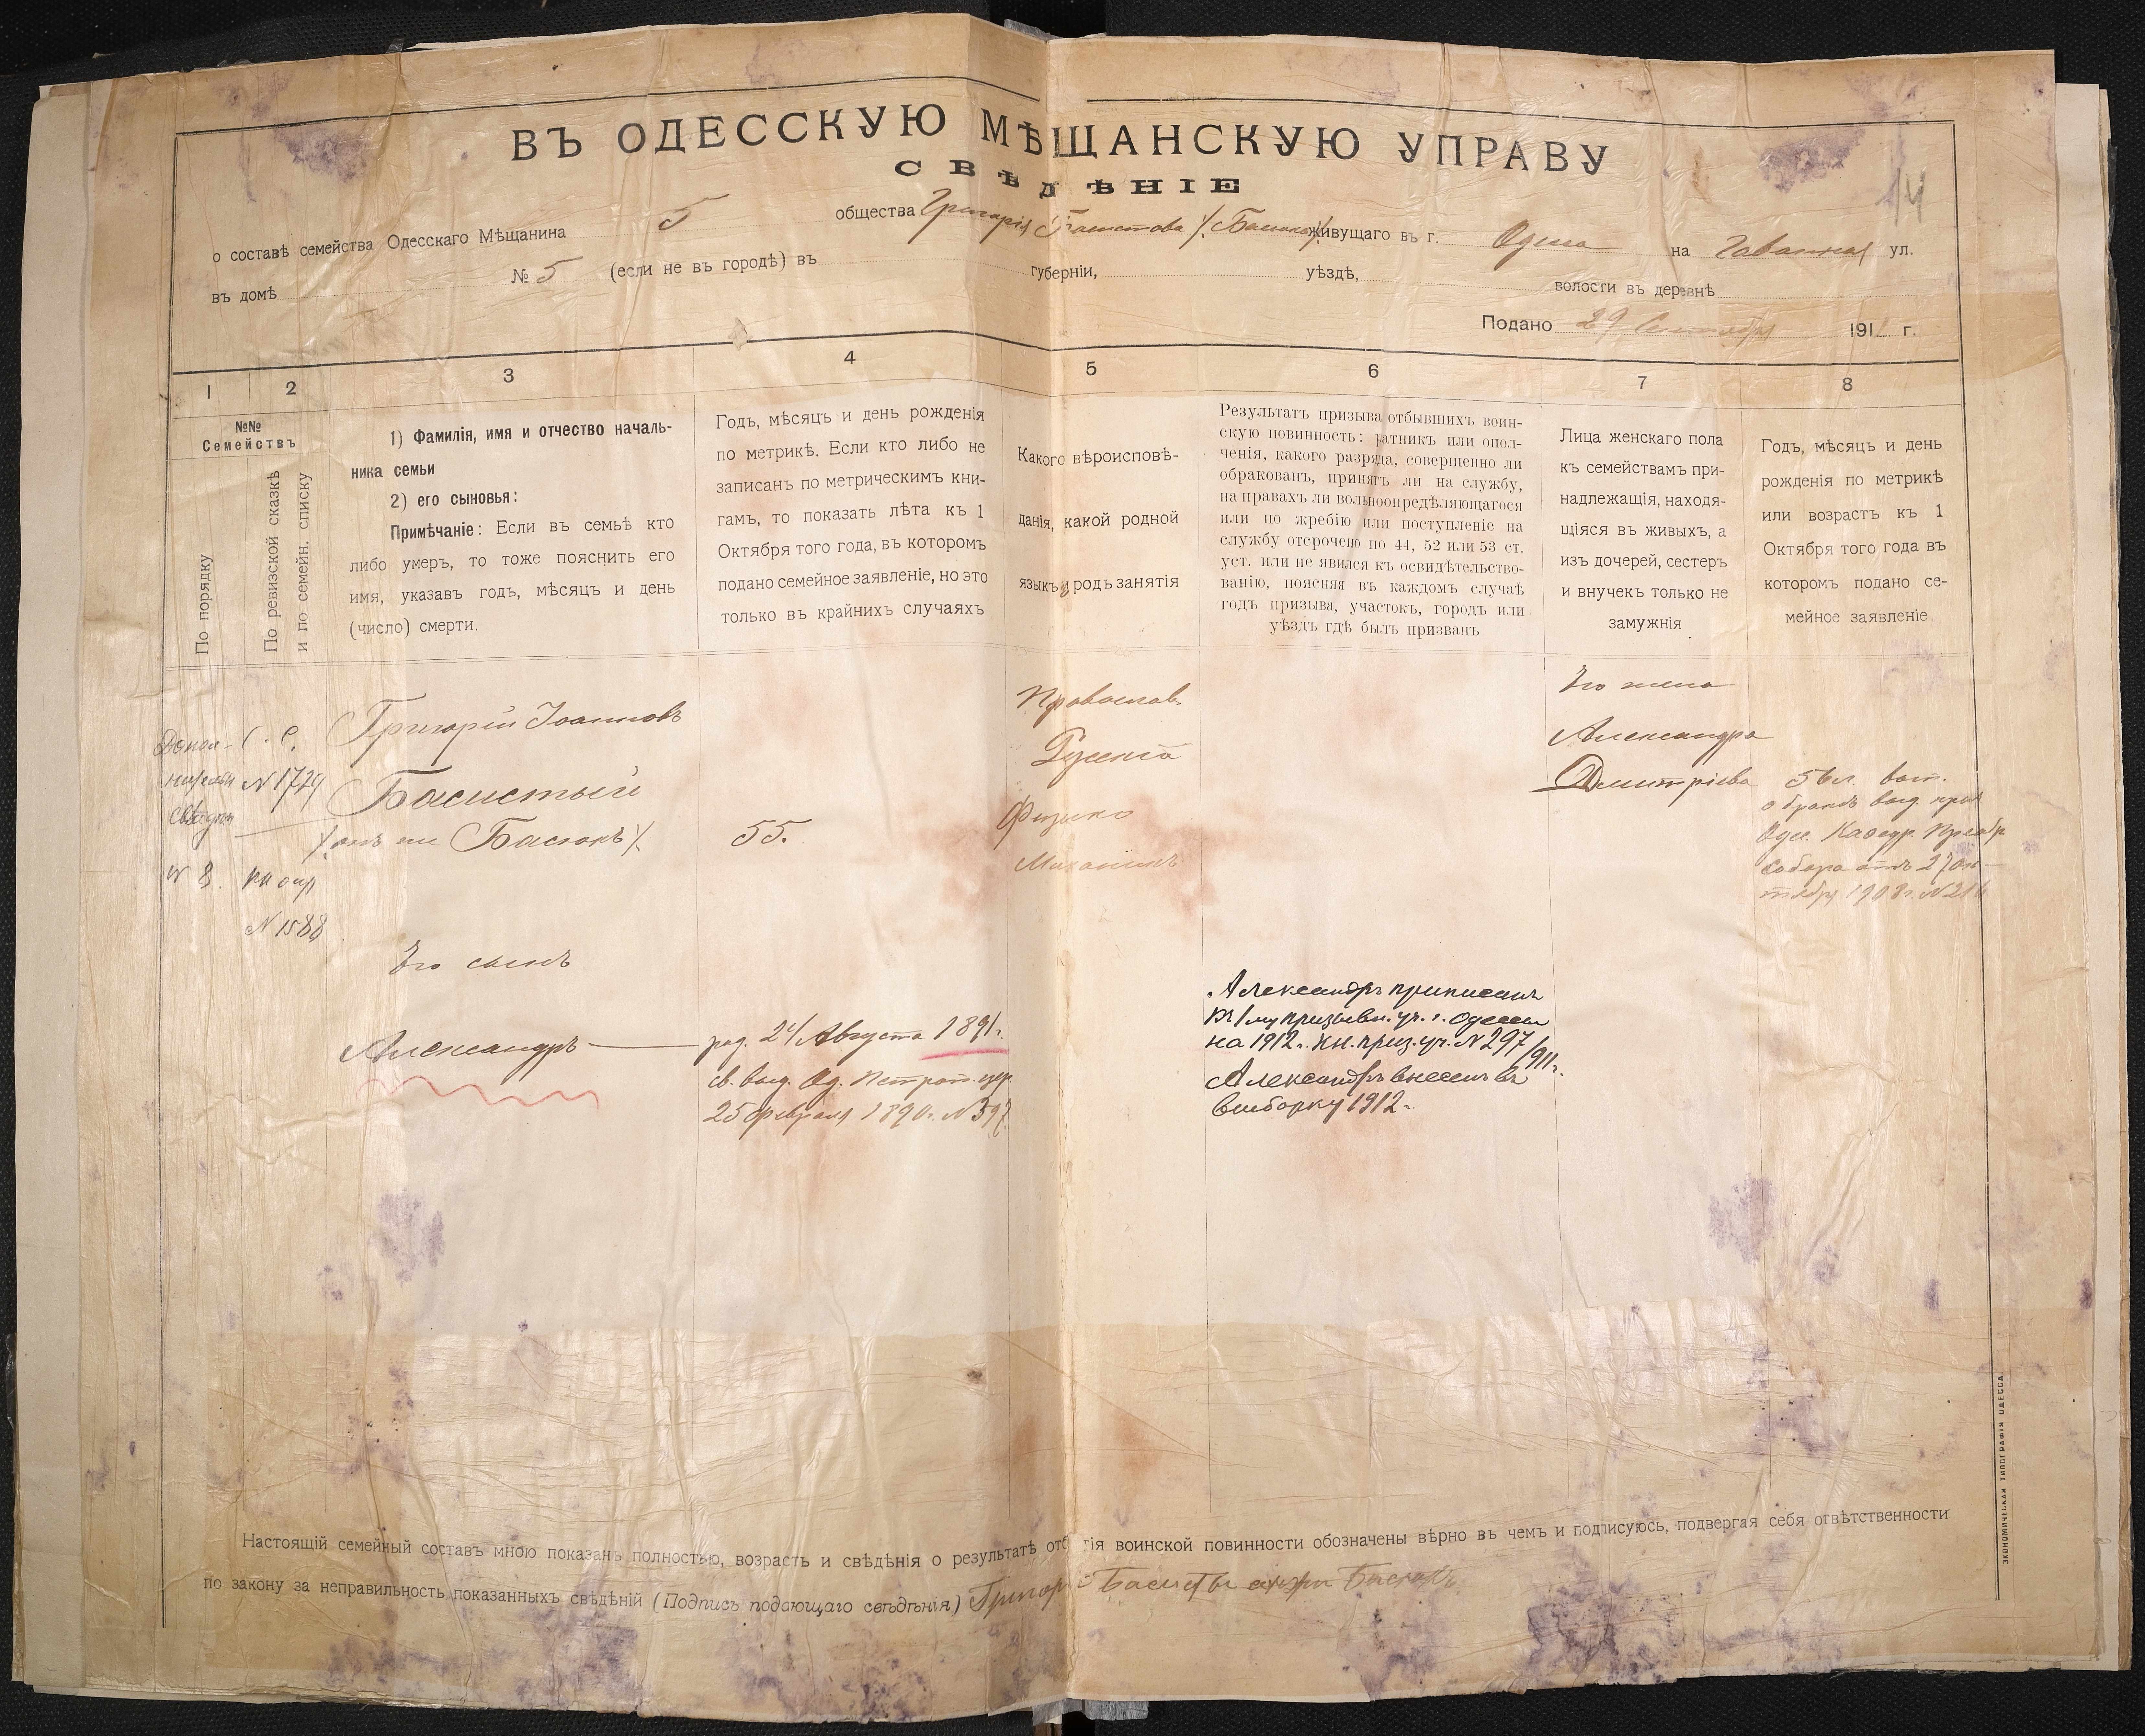 ВЪ ОДЕССКУЮ МѢЩАНСКУЮ УПРАВУ
СВѢДѢНІЕ
о составѣ семейства Одесскаго Мѣщанина 5 общества Григорія Басистова /. Басюкъ ./ живущаго въ г. Одесса на Гаванная ул.
въ домѣ № 5 (если не въ городѣ) въ губерніи, уѣздѣ, волости въ деревнѣ
Подано 29 Сентября 1911 г.
1 2 3 4 5 6 7 8
№№
Семействъ
По порядку
По ревизской сказкѣ
и по семейн. списку
1) Фамилія, имя и отчество началь-
ника семьи
2) его сыновья:
Примѣчаніе: Если въ семьѣ кто
либо умеръ, то тоже пояснить его
имя, указавъ годъ, мѣсяцъ и день
(число) смерти.
Годъ, мѣсяцъ и день рожденія
по метрикѣ. Если кто либо не
записанъ по метрическимъ кни-
гамъ, то показать лѣта къ 1
Октября того года, въ которомъ
подано семейное заявленіе, но это
только въ крайнихъ случаяхъ
Какого вѣроисповѣ-
данія, какой родной
языкъ и родъ занятія
Результатъ призыва отбывшихъ воин-
скую повинность: ратникъ или опол-
ченія, какого разряда, совершенно ли
обракованъ, принятъ ли на службу,
на правахъ ли вольноопредѣляющагося
или по жребію или поступленіе на
службу отсрочено по 44, 52 или 53 ст.
уст. или не явился къ освидѣтельство-
ванію, поясняя въ каждомъ случаѣ
годъ призыва, участокъ, городъ или
уѣздъ гдѣ былъ призванъ
Лица женскаго пола
къ семействамъ при-
надлежащія, находя-
щіяся въ живыхъ, а
изъ дочерей, сестеръ
и внучекъ только не
замужнія
Годъ, мѣсяцъ и день
рожденія по метрикѣ
или возрастъ къ 1
Октября того года въ
которомъ подано се-
мейное заявленіе
С. С.
N 1729
N 8.
N 1588
Григорій Іоанновъ
Басистый
/. онъ же Басюкъ /.
55.
Православ.
Русскій
Физико
Механикъ
Его жена
Александра
Дмитріева
56 л.
о бракѣ выд. при
Одес. Кафедр. Преобр
Собора отъ 27 ок-
тября 1908 г. N 216
Его сынъ
Александръ
род. 24 Августа 1891 г.
св. выд. Од. Петроп. цер.
25 февраля 1890 г. N 397.
Александръ приписанъ
къ 1му призывн. уч. г. Одессы
на 1912 г. кн. приз. уч. N 297/911 г.
Александръ внесенъ въ
выборку 1912 г.
Настоящій семейный составъ мною показанъ полностью, возрастъ и свѣдѣнія о результатѣ отбытія воинской повинности обозначены вѣрно въ чемъ и подписуюсь, подвергая себя отвѣтственности
по закону за неправильность показанныхъ свѣдѣній (Подпись подающаго свѣдѣнія) Григорій Басистый Басюкъ
ЭКОНОМИЧЕСКАЯ ТИПОГРАФІЯ ОДЕССА.